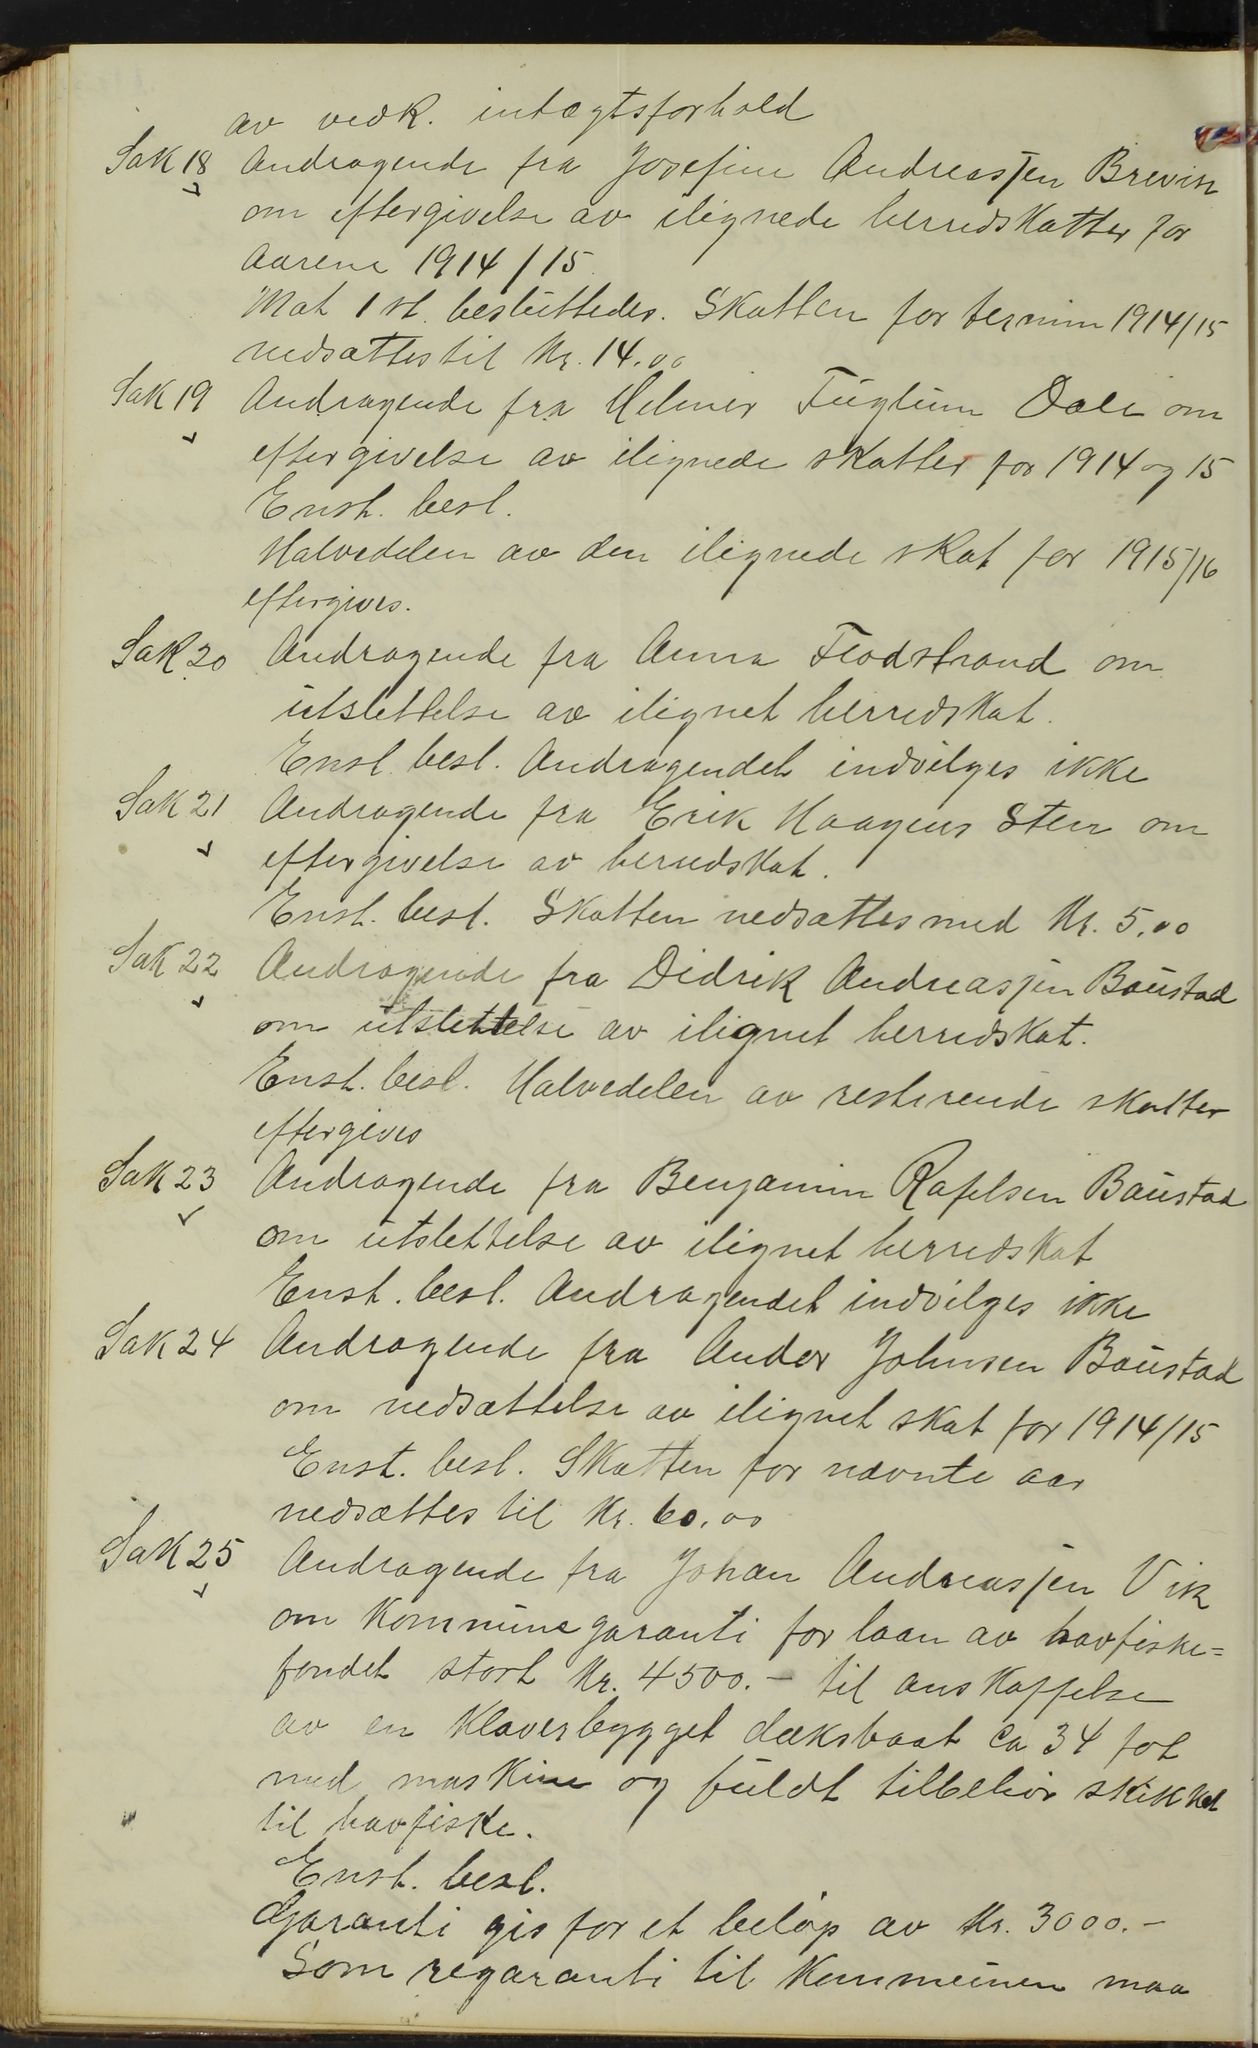 av vedk. intægtsforhold
Sak 18 Andragende fra Josefine Andreasjen Brevik
om eftergivelse av ilignede herredskatter for
aarene 1914/15.
Mot 1 st. besluttedes. Skatten for termin 1914/15
nedsættes til Kr. 14.00
Sak 19 Andragende fra Helmer Fuglum Dale om
eftergivelse av ilignede skatter for 1914 og 15
Enst. besl.
Halvedelen av den ilignede skat for 1915/16
eftergives.
Sak 20 Andragende fra Anna Flodstrand om
utslettelse av ilignet herredskat.
Enst. besl. Andragendet indvilges ikke
Sak 21 Andragende fra Erik Haagens Sten om
eftergivelse av herredskat.
Enst. besl. Skatten nedsættes med Kr. 5.00
Sak 22 Andragende fra Didrik Andreasjen Baustad
om utslettelse av ilignet herredskat.
Enst. besl. Halvedelen av resterende skatter
eftergives
Sak 23 Andragende fra Benjamin Rafelsen Baustad
om utslettelse av ilignet herredskat
Enst. besl. Andragendet indvilges ikke
Sak 24 Andragende fra Ander Johnsen Baustad
om nedsættelse av ilignet skat for 1914/15
Enst. besl. Skatten for nævnte aar
nedsættes til Kr. 60.00
Sak 25 Andragende fra Johan Andreasjen Vik
om kommunegaranti for laan av havfiske=
fondet stort Kr. 4500.- til anskaffelse
av en klaverbygget dæksbaat ca 34 fot
med maskine og fuldt tilbehør skikket
til havfiske.
Enst. besl.
Garanti gis for et beløp av Kr. 3000.-
Som regaranti til kommunen maa